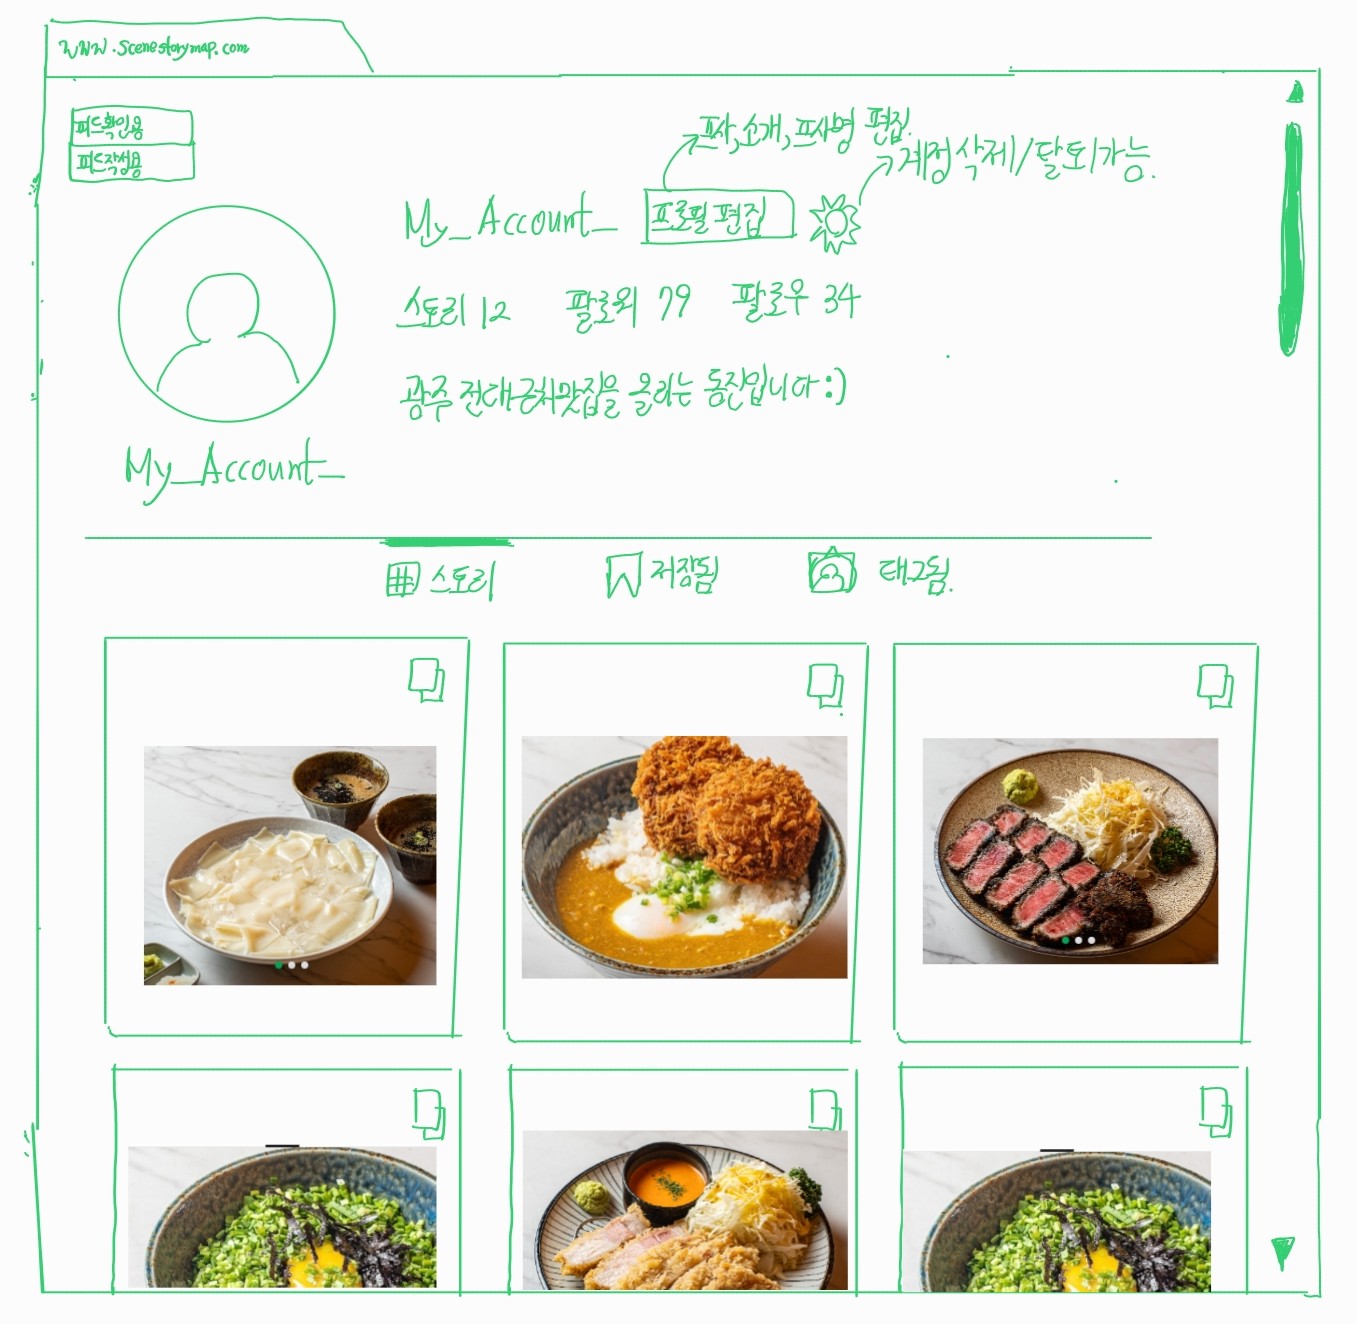 www.scenestorymap.com
피드확인용
피드작성용
프사,소개,프사명 편집.
계정삭제/탈퇴가능.
My_Account_ 프로필 편집
스토리 12 팔로워 79 팔로우 34
광주 전대근처맛집을 올리는 동진입니다 :)
My_Account_
스토리 저장됨 태그됨.